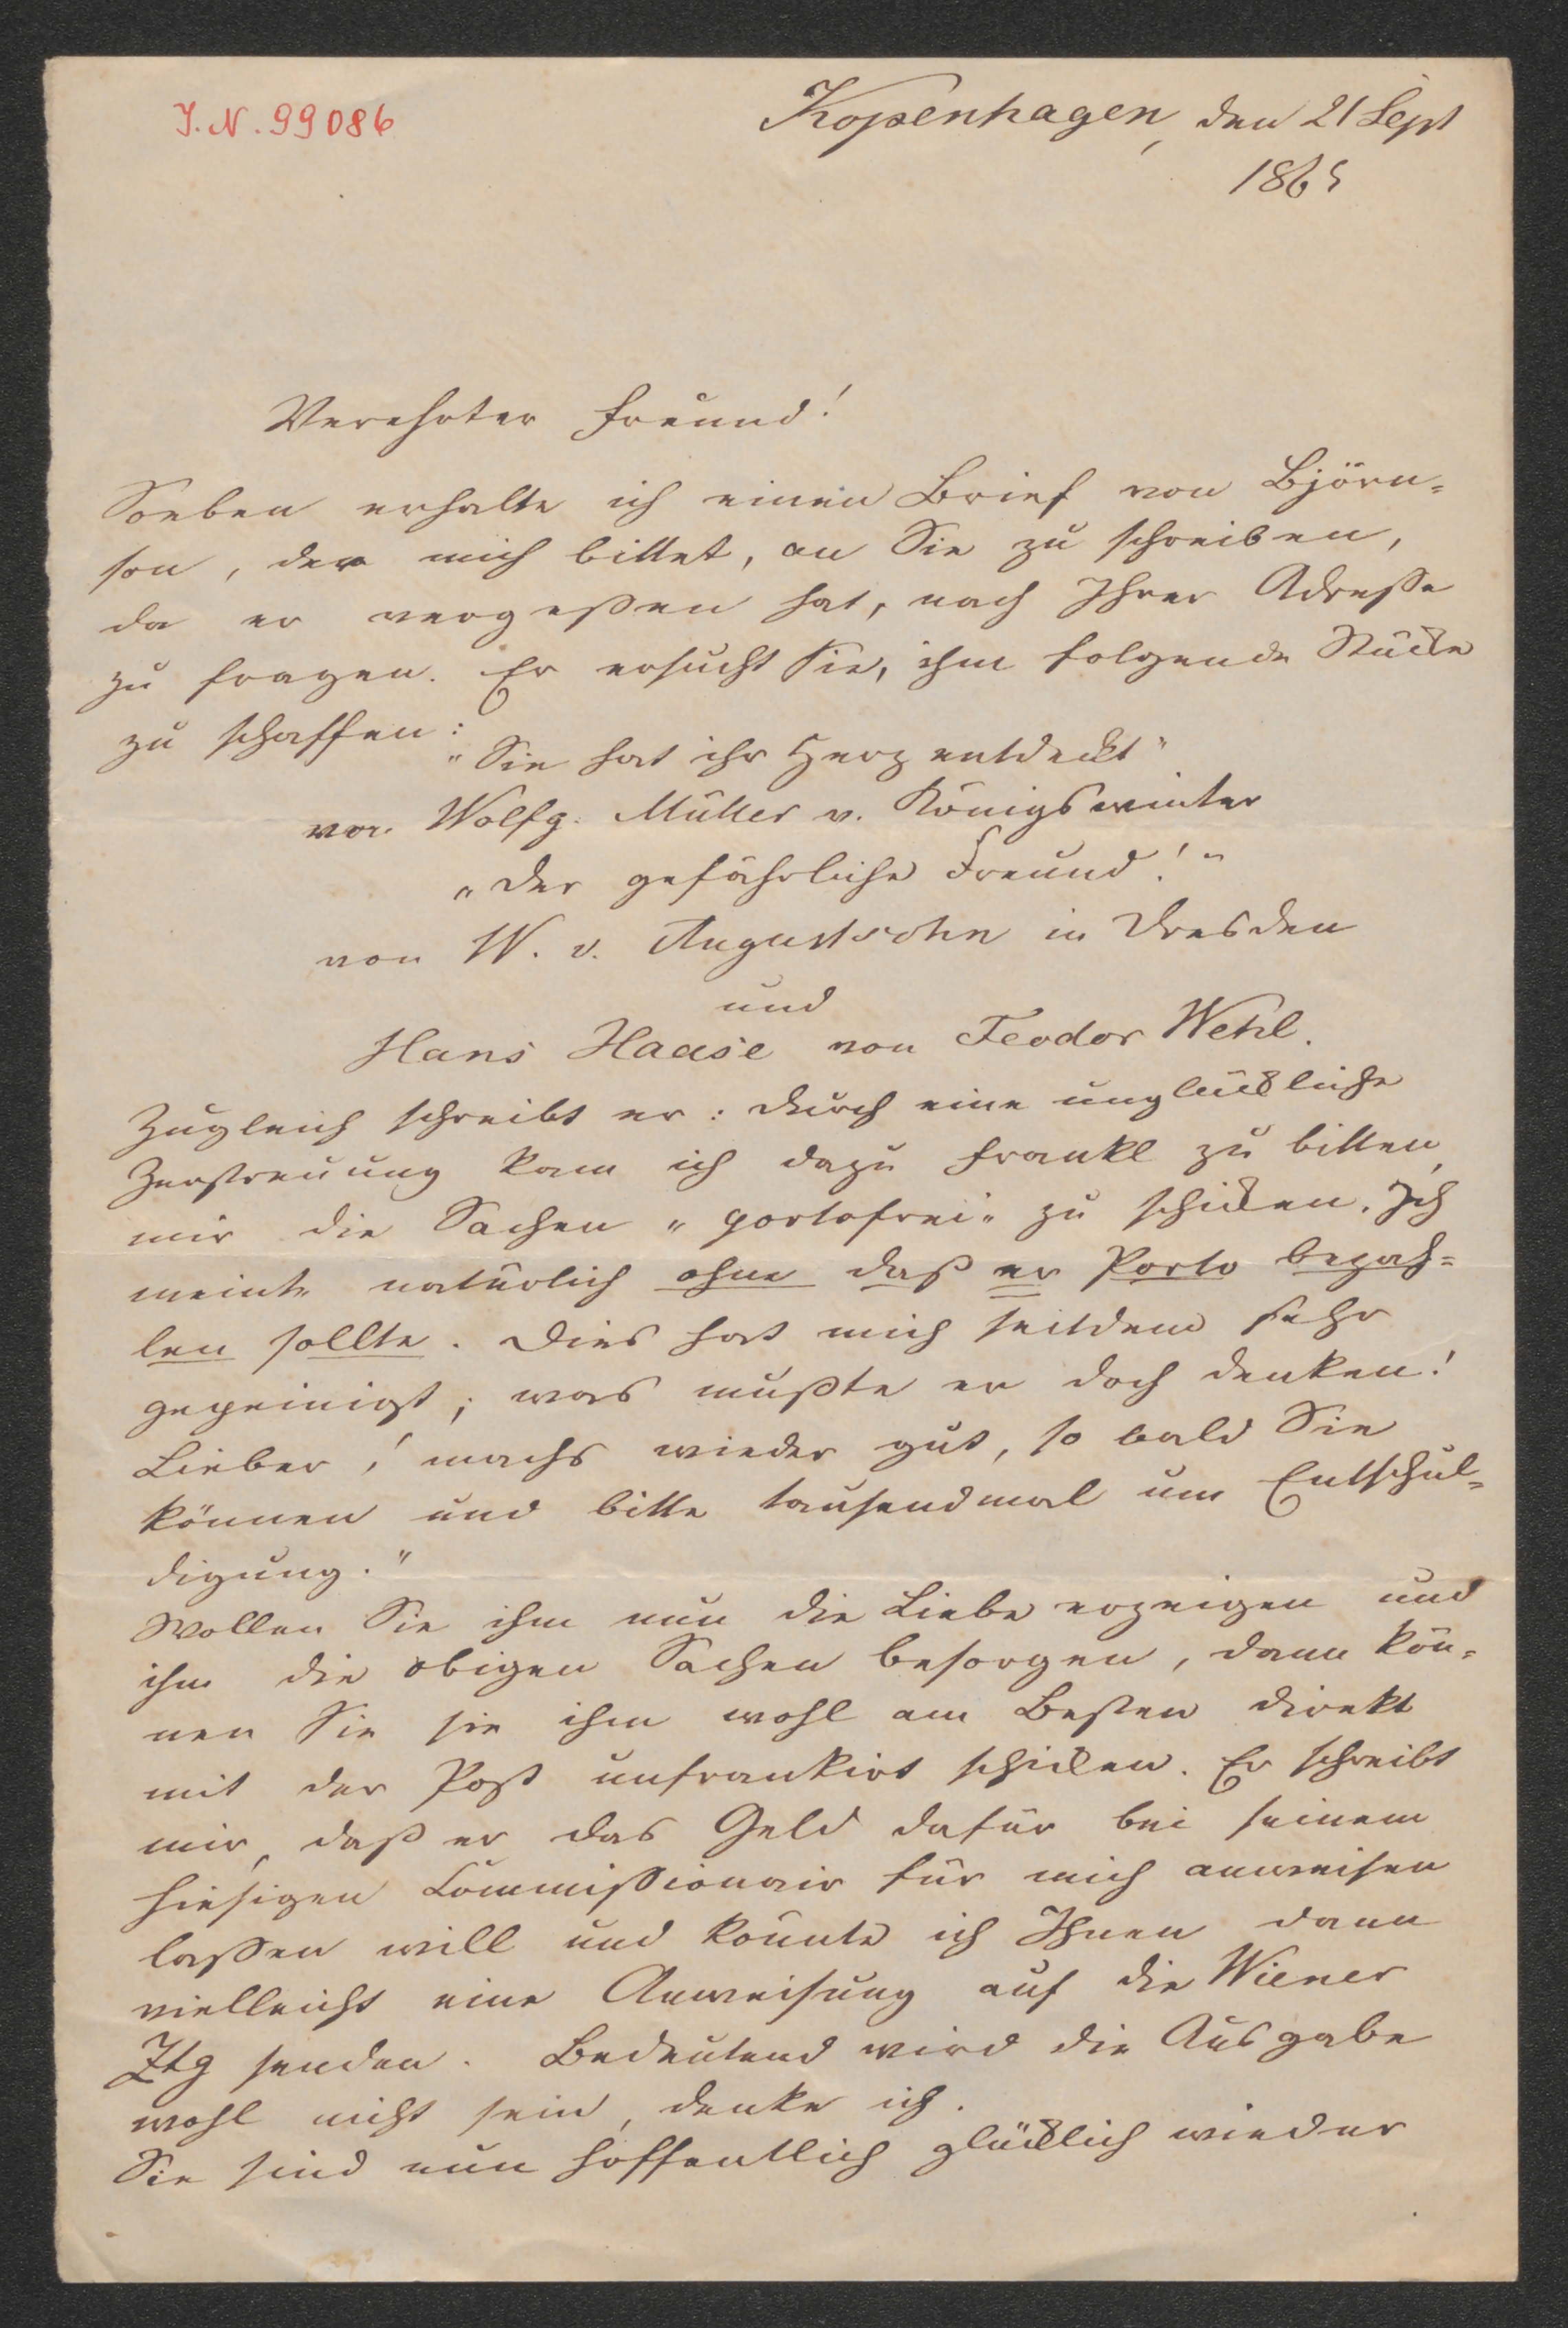 J. N. 99086
Kopenhagen, den 21 Sept
1865
Verehrter Freund!
Soeben erhalte ich einen Brief von Björn-
son, der mich bittet, an Sie zu schreiben,
da er vergeßen hat, nach Ihrer Adreße
zu fragen. Er ersucht Sie, ihm folgende Stücke
zu schaffen:
"Sie hat ihr Herz entdeckt"
von Wolfg. Müller v. Königswinter
„Der gefährliche Freund!"
von W. v. Augustsohn in Dresden
und
Hans Haase von Feodor Wehl.
Zugleich schreibt er: Durch eine unglückliche
Zerstreuung kam ich dazu Frankl zu bitten,
mir die Sachen „portofrei" zu schicken. Ich
meinte natürlich ohne daß er Porto bezah-
len sollte. Dies hat mich seitdem sehr
gepeinigt; was mußte er doch denken!
Lieber, machs wieder gut, so bald Sie
können und bitte tausendmal um Entschul-
digung."
Wollen Sie ihm nun die Liebe erzeigen und
ihm die obigen Sachen besorgen, dann kön-
nen Sie sie ihm wohl am Besten direkt
mit der Post unfrankirt schicken. Er schreibt
mir, daß er das Geld dafür bei seinem
hiesigen Commißionair für mich anweisen
laßen will und könnte ich Ihnen dann
vielleicht eine Anweisung auf die Wiener
Ztg senden. Bedeutend wird die Ausgabe
wohl nicht sein, denke ich.
Sie sind nun hoffentlich glücklich wieder